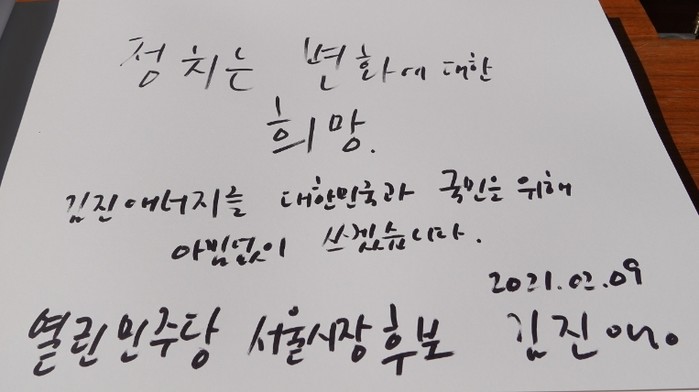 정치는 변화에 대한
희망.
김진애너지를 대한민국과 국민을 위해
아낌없이 쓰겠습니다.
2021.02.09
열린민주당 서울시장후보 김진애.